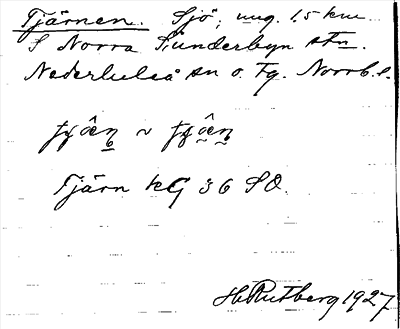 Tjärnen. Sjö, ung. 1,5 km
S Norra Sunderbyn stn.
Nederluleå sn o. tg. Norrb. l.
Tjärn kG 36 SO.
H Rutberg 1927